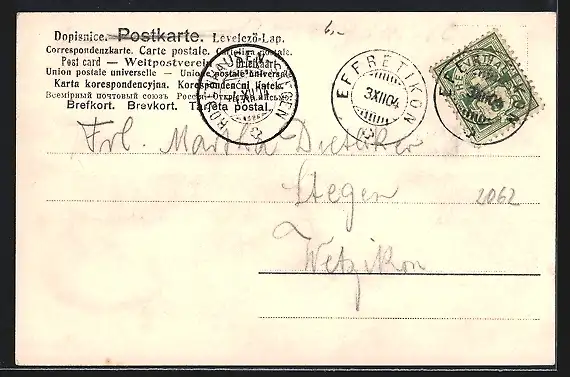 Dopisnice. Postkarte. Levelező-Lap.
Correspondenzkarte. Carte postale. Cartolina postale.
Post card — Weltpostverein — Briefkaart
Union postale universelle — Unione postale universale
Karta korespondencyjna. Korespondenční lístek.
Всемірный почтовый союзъ. Россія—
Brefkort. Brevkort. Tarjeta postal.
EFFRETIKON
3XII04
EFFRETIKON
Frl. Martha
Stegen
2062
Wetzikon